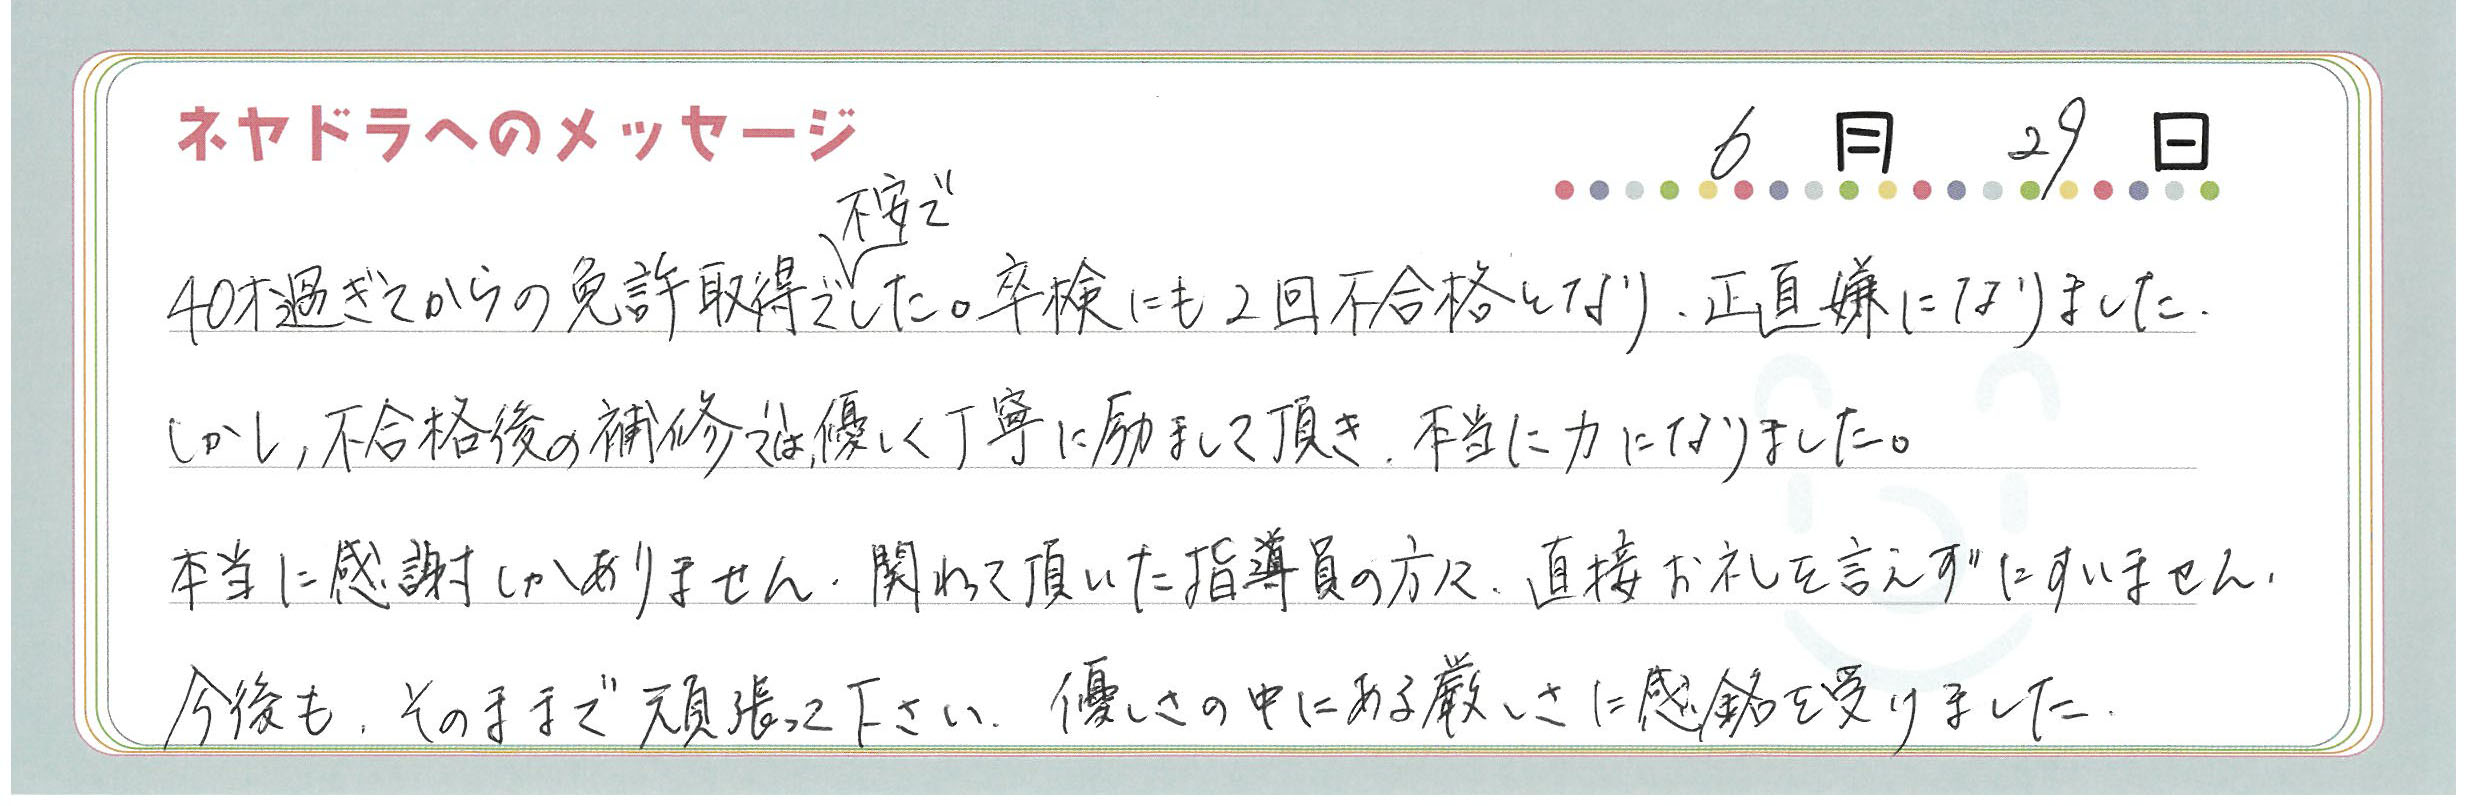 ネヤドラへのメッセージ
6月 29日
不安で
40才過ぎてからの免許取得でした。卒検にも2回不合格となり、正直嫌になりました。
しかし、不合格後の補修では、優しく丁寧に励まして頂き、本当に力になりました。
本当に感謝しかありません。関わって頂いた指導員の方々、直接お礼を言えずにすいません。
今後も、そのままで頑張って下さい。優しさの中にある厳しさに感銘を受けました。